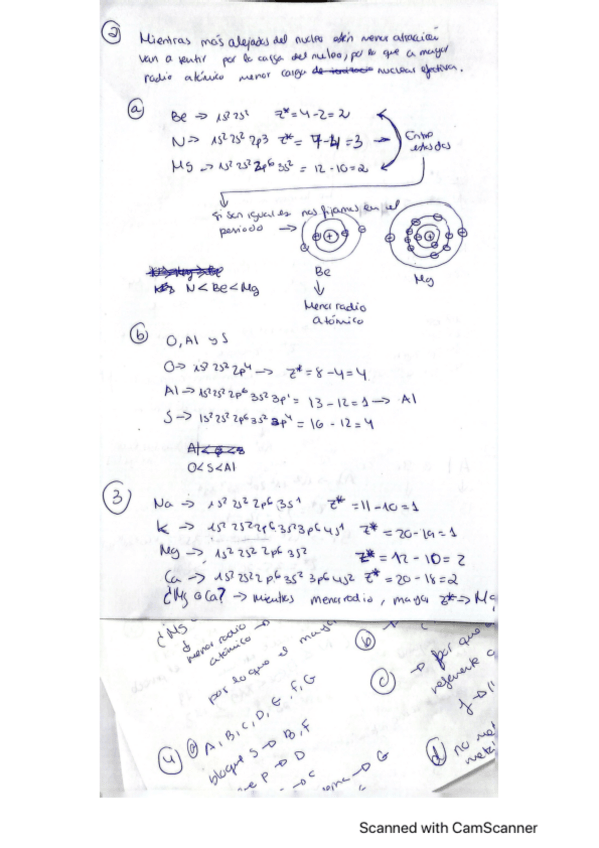 2 Mientras más alejados del nucleo estén menor atracción
van a sentir por la carga del nucleo, por lo que a mayor
radio atómico menor carga nuclear efectiva.
a
Be → 1s² 2s² Z* = 4 - 2 = 2
N → 1s² 2s² 2p3 Z* = 7 - 4 = 3 →
Mg → 1s² 2s² 2p⁶ 3s² = 12 - 10 = 2
Entre
estados
si son iguales nos fijamos en el
periodo →
Be
Mg
Menor radio
atómico
N < Be < Mg
b O, Al y S
O → 1s² 2s² 2p⁴ → Z* = 8 - 4 = 4
Al → 1s² 2s² 2p⁶ 3s² 3p¹ = 13 - 12 = 1 → Al
S → 1s² 2s² 2p⁶ 3s² 3p⁴ = 16 - 12 = 4
Al < O < S
O < S < Al
3 Na → 1s² 2s² 2p⁶ 3s¹ Z* = 11 - 10 = 1
K → 1s² 2s² 2p⁶ 3s² 3p⁶ 4s¹ Z* = 20 - 19 = 1
Mg → 1s² 2s² 2p⁶ 3s² Z* = 12 - 10 = 2
Ca → 1s² 2s² 2p⁶ 3s² 3p⁶ 4s² Z* = 20 - 18 = 2
¿Mg o Ca? → mientras menor radio, mayor Z* → Mg
¿Mg
menor radio →
atómico
por lo que el mayor
b
c → por que
referente a
4 a A, B, C, D, E, F, G
bloque S → B, F
P → D
→ C
→ G
d no met
metal
Scanned with CamScanner